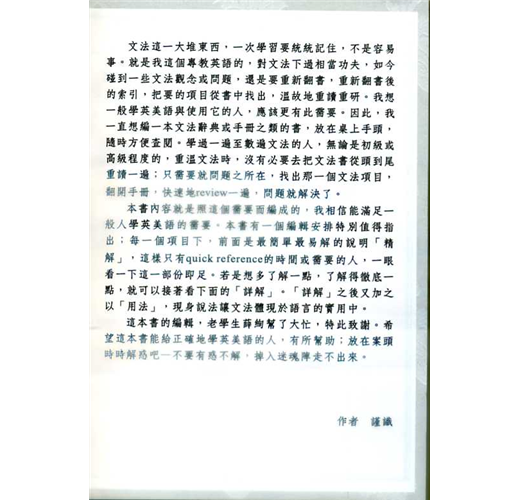 文法這一大堆東西，一次學習要統統記住，不是容易
事。就是我這個專教英語的，對文法下過相當功夫，如今
碰到一些文法觀念或問題，還是要重新翻書，重新翻書後
的索引，把要的項目從書中找出，溫故地重讀重研。我想
一般學英美語與使用它的人，應該更有此需要。因此，我
一直想編一本文法辭典或手冊之類的書，放在桌上手頭，
隨時方便查閱。學過一遍至數遍文法的人，無論是初級或
高級程度的，重溫文法時，沒有必要去把文法書從頭到尾
重讀一遍；只需要就問題之所在，找出那一個文法項目，
翻開手冊，快速地review一遍，問題就解決了。
本書內容就是照這個需要而編成的，我相信能滿足一
般人學英美語的需要。本書有一個編輯安排特別值得指
出；每一個項目下，前面是最簡單最易解的說明「精
解」，這樣只有quick reference的時間或需要的人，一眼
看一下這一部份即足。若是想多了解一點，了解得徹底一
點，就可以接著看下面的「詳解」。「詳解」之後又加之
以「用法」，現身說法讓文法體現於語言的實用中。
這本書的編輯，老學生薛絢幫了大忙，特此致謝。希
望這本書能給正確地學英美語的人，有所幫助；放在案頭
時時解惑吧─不要有惑不解，掉入迷魂陣走不出來。
作者　謹識